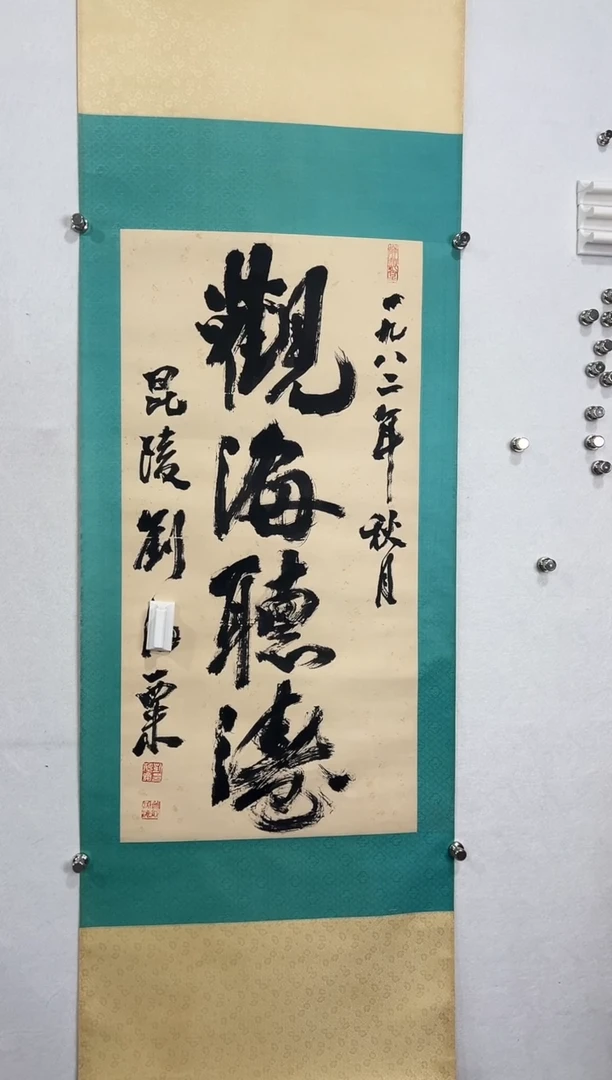 一九八二年秋月
觀海聽濤
昆陵劉海粟